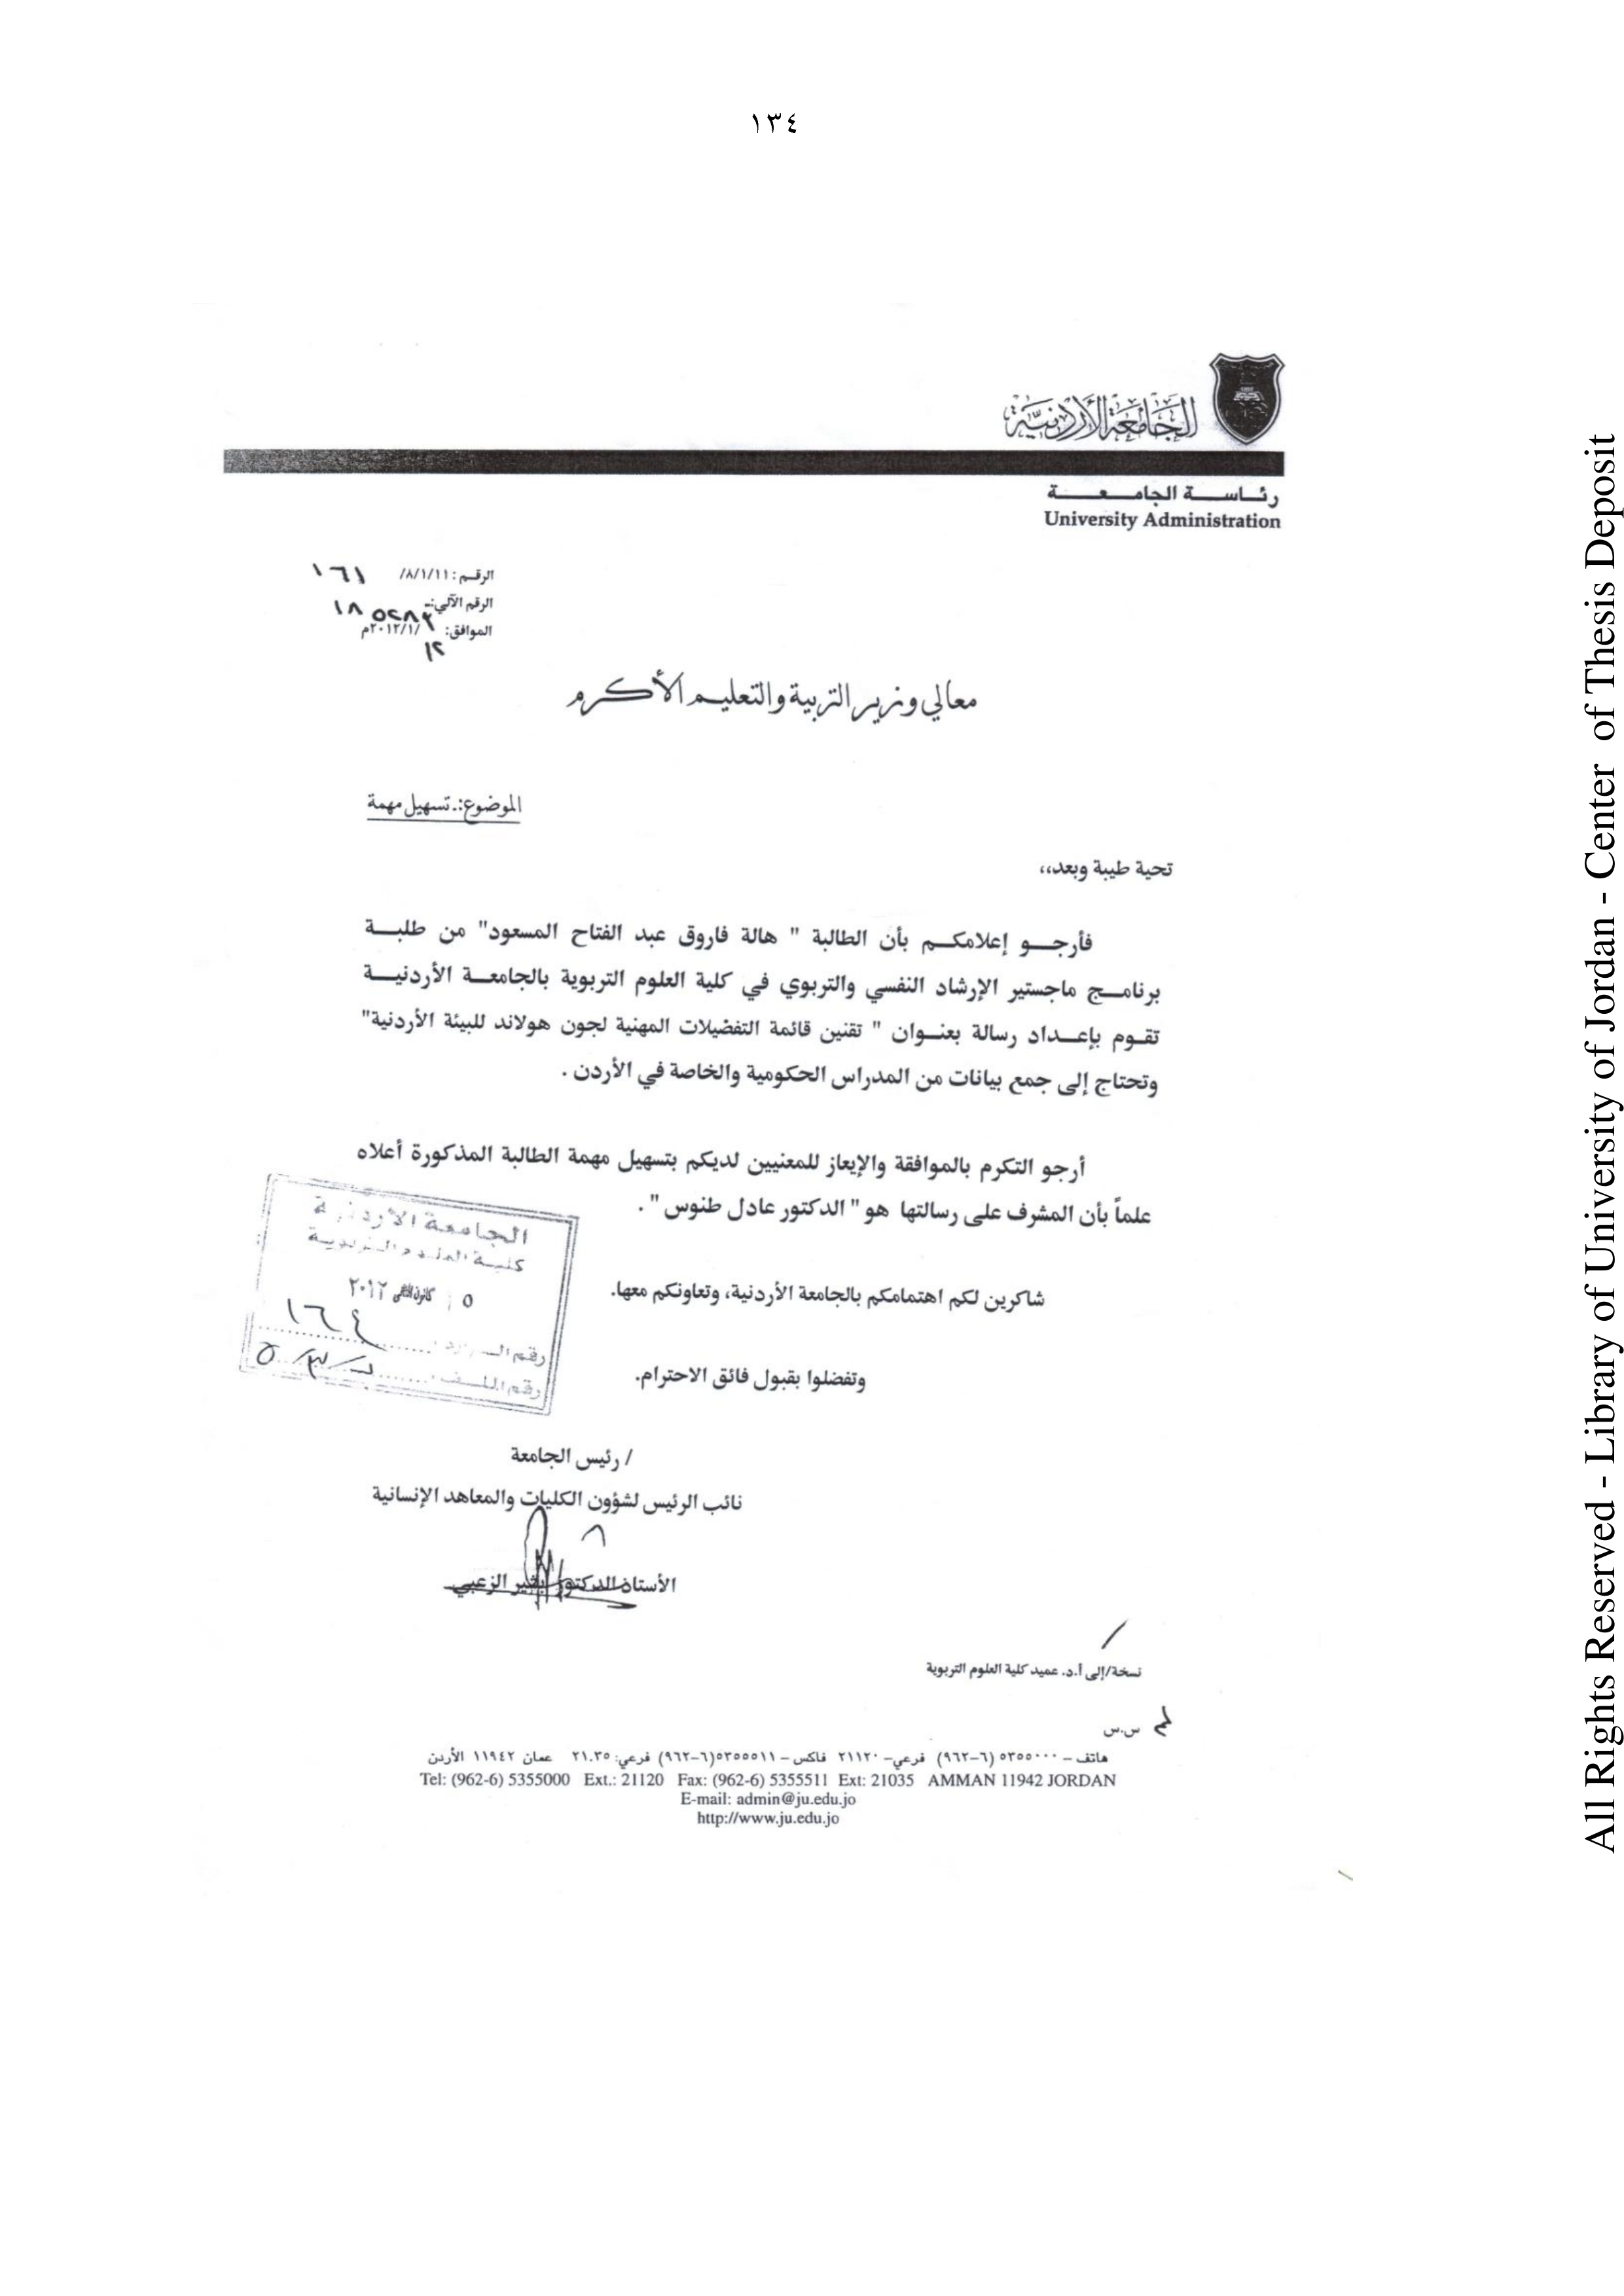 ١٣٤
الجامعة الأردنية
رئاسة الجامعة
University Administration
الرقم: ٨/١/١١/ ١٦١
الرقم الآلي:
الموافق: /٢٠١٢/١م
معالي وزير التربية والتعليم الأكرم
الموضوع:. تسهيل مهمة
تحية طيبة وبعد،،
فأرجو إعلامكم بأن الطالبة " هالة فاروق عبد الفتاح المسعود" من طلبة
برنامج ماجستير الإرشاد النفسي والتربوي في كلية العلوم التربوية بالجامعة الأردنية
تقوم بإعداد رسالة بعنوان " تقنين قائمة التفضيلات المهنية لجون هولاند للبيئة الأردنية"
وتحتاج إلى جمع بيانات من المدراس الحكومية والخاصة في الأردن .
أرجو التكرم بالموافقة والإيعاز للمعنيين لديكم بتسهيل مهمة الطالبة المذكورة أعلاه
علماً بأن المشرف على رسالتها هو " الدكتور عادل طنوس " .
الجامعة الأردنية
كلية العلوم التربوية
كانون الثاني ٢٠١٢
رقم ١٦٤
رقم الملف
شاكرين لكم اهتمامكم بالجامعة الأردنية، وتعاونكم معها.
وتفضلوا بقبول فائق الاحترام.
/ رئيس الجامعة
نائب الرئيس لشؤون الكليات والمعاهد الإنسانية
الأستاذ الدكتور بشير الزعبي
نسخة/إلى أ.د. عميد كلية العلوم التربوية
س.س
هاتف – ٥٣٥٥٠٠٠ (٦–٩٦٢) فرعي– ٢١١٢٠ فاكس – ٥٣٥٥٥١١(٦–٩٦٢) فرعي: ٢١.٣٥ عمان ١١٩٤٢ الأردن
Tel: (962-6) 5355000 Ext.: 21120 Fax: (962-6) 5355511 Ext: 21035 AMMAN 11942 JORDAN
E-mail: admin@ju.edu.jo
http://www.ju.edu.jo
All Rights Reserved - Library of University of Jordan - Center of Thesis Deposit